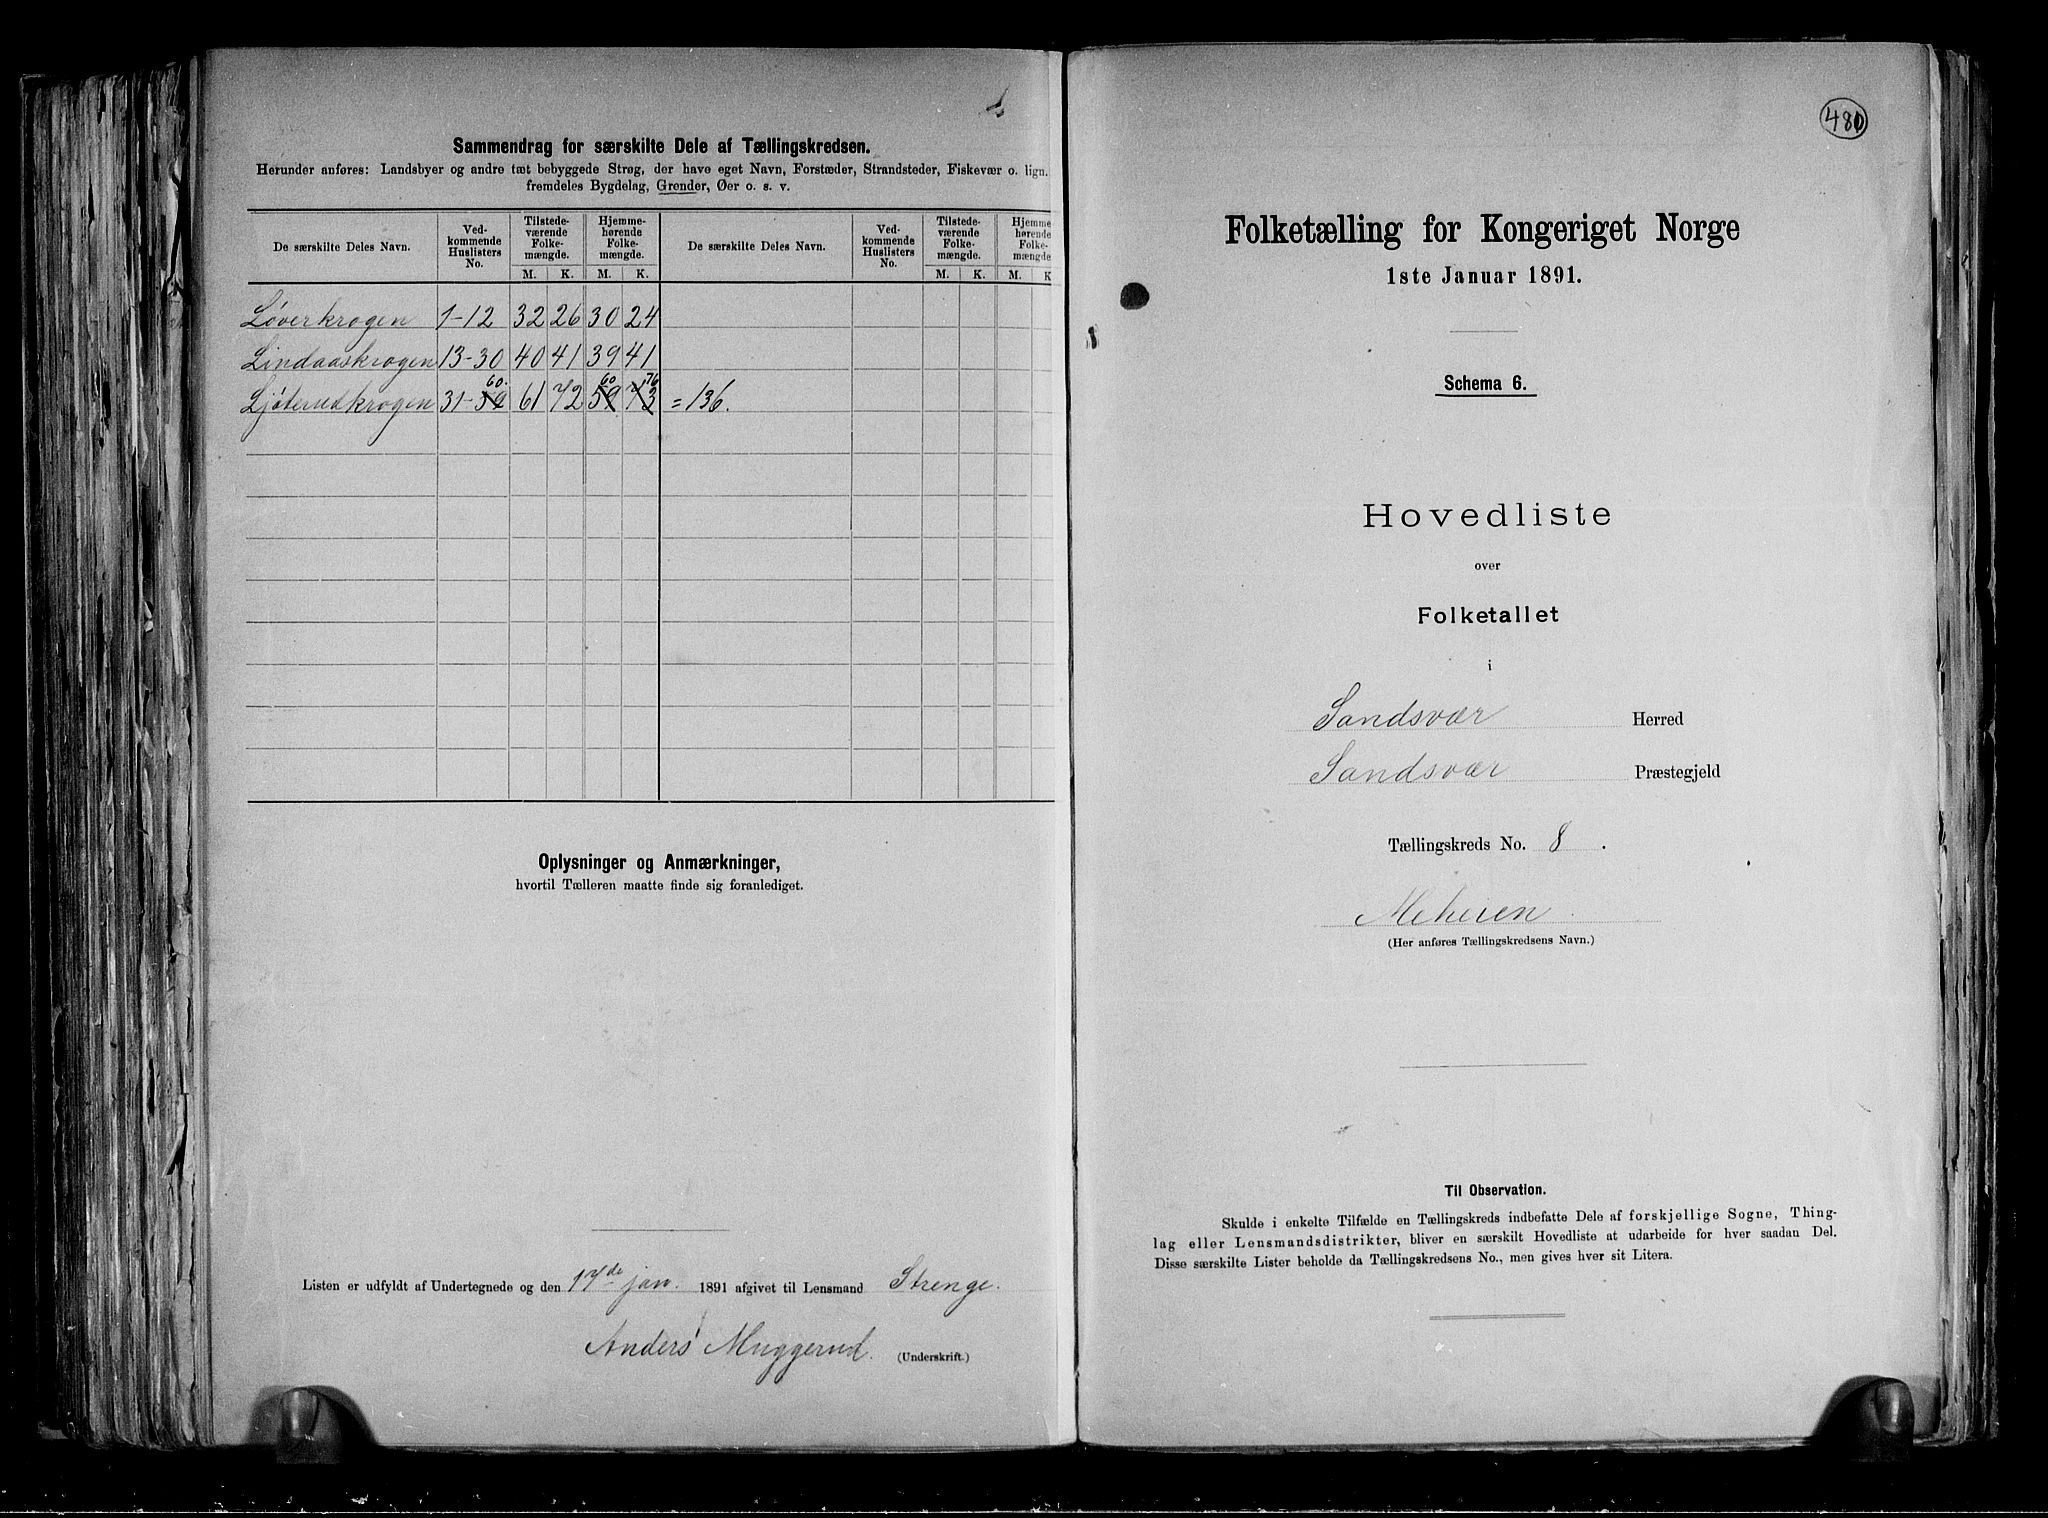 Sammendrag for særskilte Dele af Tællingskredsen.
Herunder anføres: Landsbyer og andre tæt bebyggede Strøg, der have eget Navn, Forstæder, Strandsteder, Fiskevær o. lign.
fremdeles Bygdelag, Grender, Øer o. s. v.
De særskilte Deles Navn. Ved-kommende Huslisters No. Tilstede-værende Folke-mængde. Hjemme-hørende Folke-mængde. De særskilte Deles Navn. Ved-kommende Huslisters No. Tilstede-værende Folke-mængde. Hjemme-hørende Folke-mængde
M. K. M. K. M. K. M. K
Løverkrogen 1-12 32 26 30 24
Lindaaskrogen 13-30 40 41 39 41
60. 60 76
Ljøterudkrogen 31-59 61 72 59 73 = 136.
Oplysninger og Anmærkninger,
hvortil Tælleren maatte finde sig foranlediget.
Listen er udfyldt af Undertegnede og den 17de jan. 1891 afgivet til Lensmand Strenge.
Anders Muggerud.
(Underskrift.)
480
Folketælling for Kongeriget Norge
1ste Januar 1891.
Schema 6.
Hovedliste
over
Folketallet
i
Sandsvær Herred
Sandsvær Præstegjeld
Tællingskreds No. 8.
Meheien
(Her anføres Tællingskredsens Navn.)
Til Observation.
Skulde i enkelte Tilfælde en Tællingskreds indbefatte Dele af forskjellige Sogne, Thing-
lag eller Lensmandsdistrikter, bliver en særskilt Hovedliste at udarbeide for hver saadan Del.
Disse særskilte Lister beholde da Tællingskredsens No., men gives hver sit Litera.